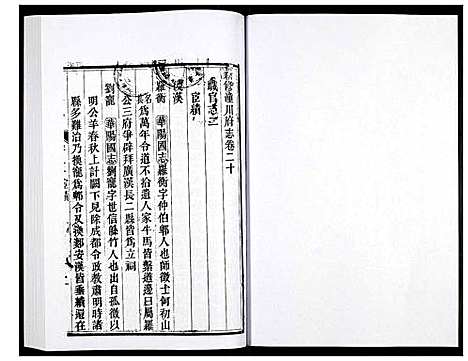 新修潼川府志卷二十
職官志三
宦績
後漢
羅衡 華陽國志羅衡字仲伯郪人也師徵士何幼山
名爲萬年令道不拾遺人家牛馬皆繫道邊曰屬羅
公三府爭辟拜廣漢長二縣皆爲立祠
劉寵 華陽國志劉寵字世信緜竹人也出自孤微以
明公羊春秋上計闕下見除成都令政教肅明時諸
縣多難治乃換寵爲郫令又換郪安漢皆垂績還在